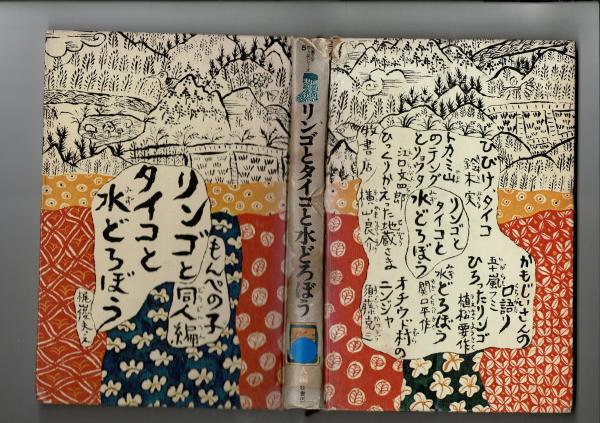 ひびけ、タイコ
鈴木実
トカミ山
のテング
とリョウタ
江口文四郎
ひっくりかえった地蔵さま
横山良介
牧書店
かもじいさんの
口語り
五十嵐フミ
ひろったリンゴ
植松要作
水どろぼう
関口平作
オチウド村の
ニンジャ
須藤克三
リンゴと
タイコと
水どろぼう
リンゴとタイコと水どろぼう
牧書店
リンゴと
タイコと
水どろぼう
もんぺの子
同人編